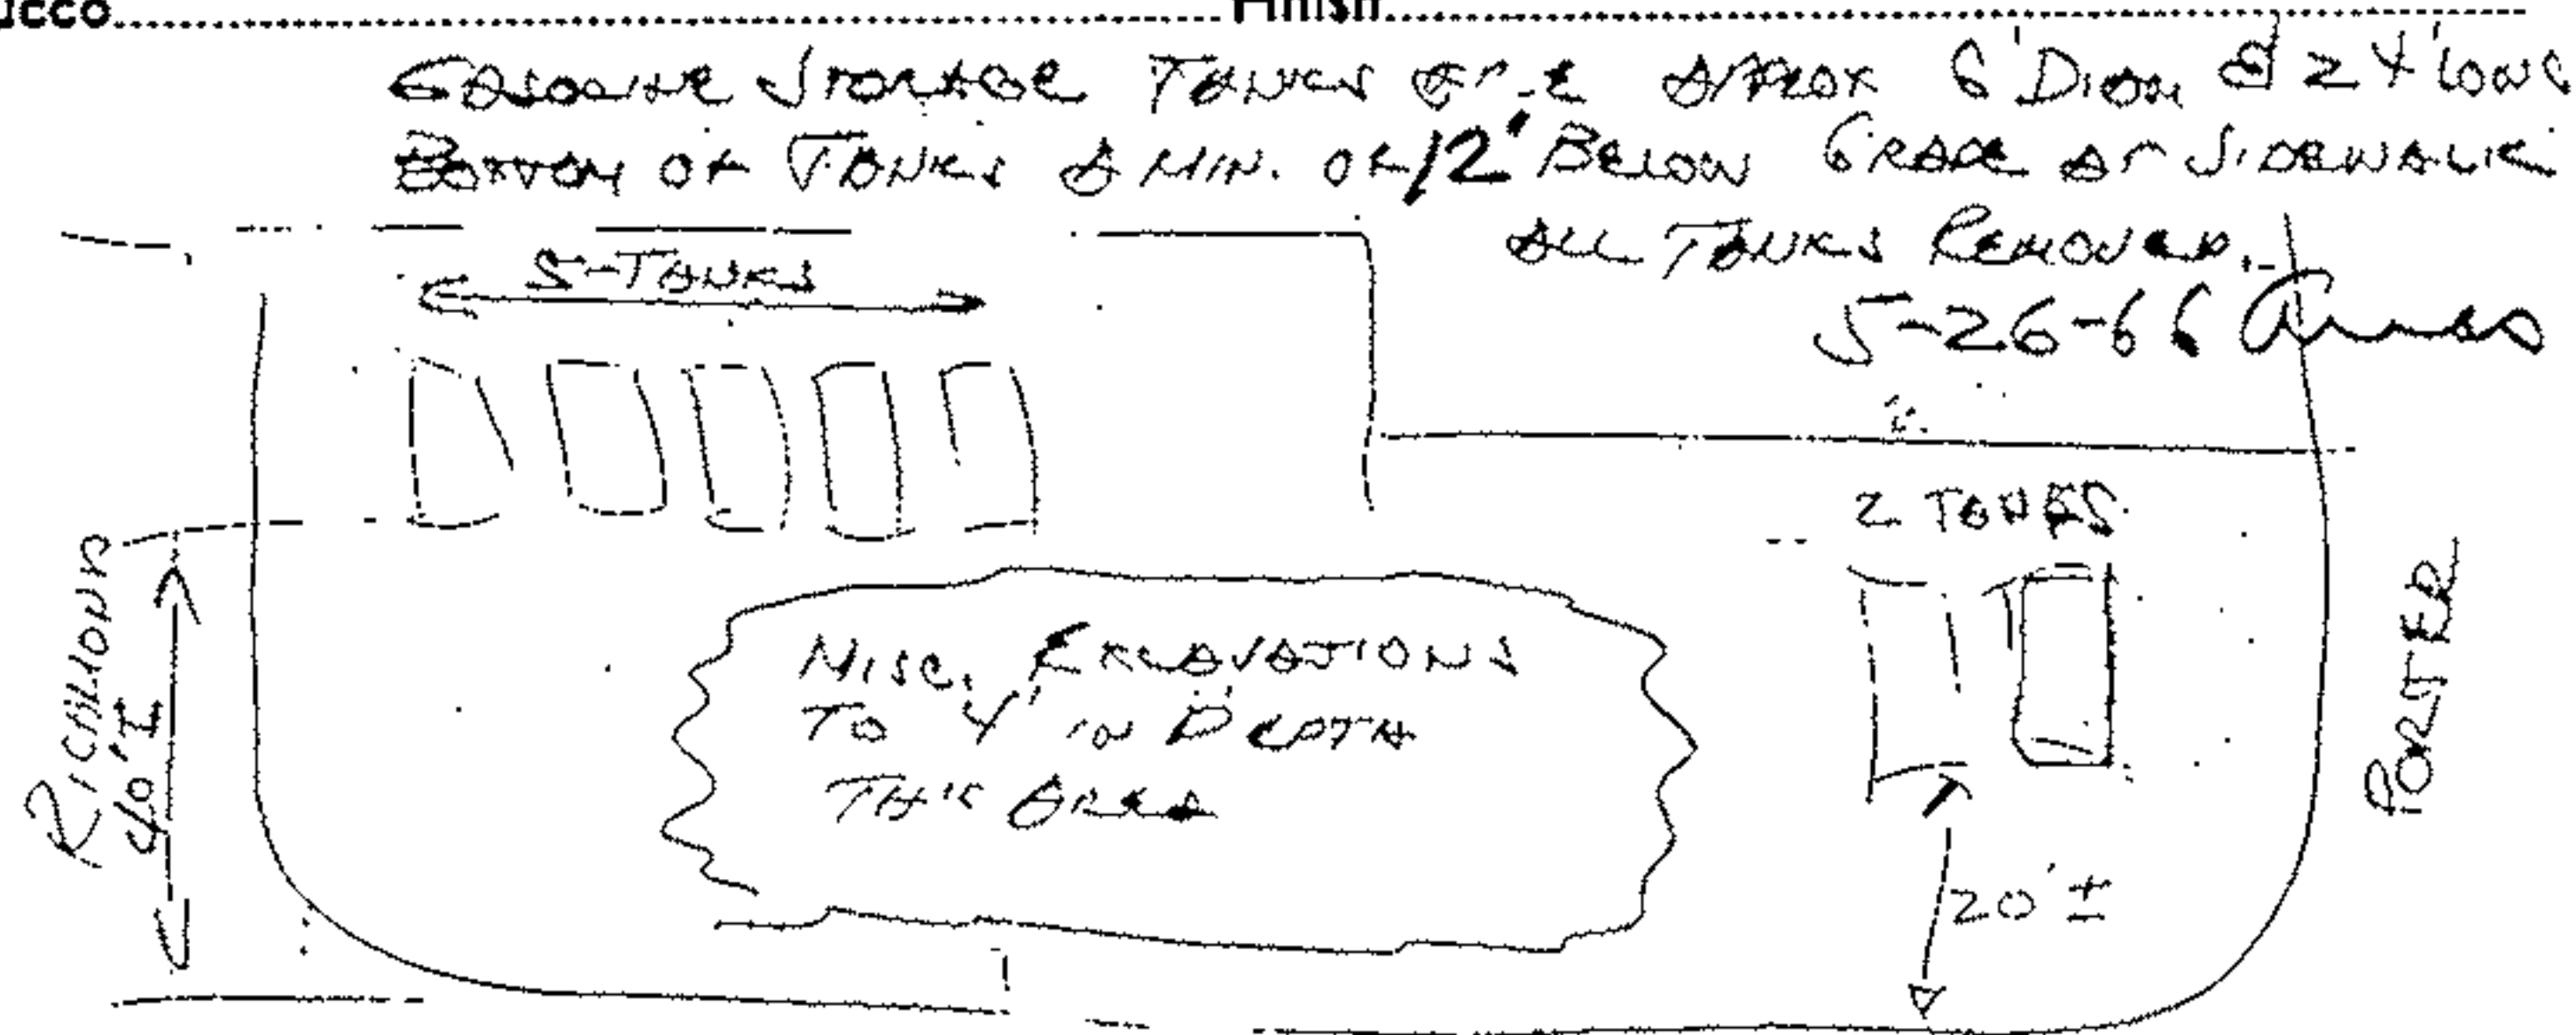 ucco Finish
Gasoline Storage Tanks are approx 6' Diam & 24' long
Bottom of Tanks a min. of 12' Below Grade at Sidewalk
All Tanks Removed.
5-26-66
5-Tanks
2 Tanks
Richmond
40' ±
Misc. Excavations
To 4' in Depth
This Area
Porter
20' ±